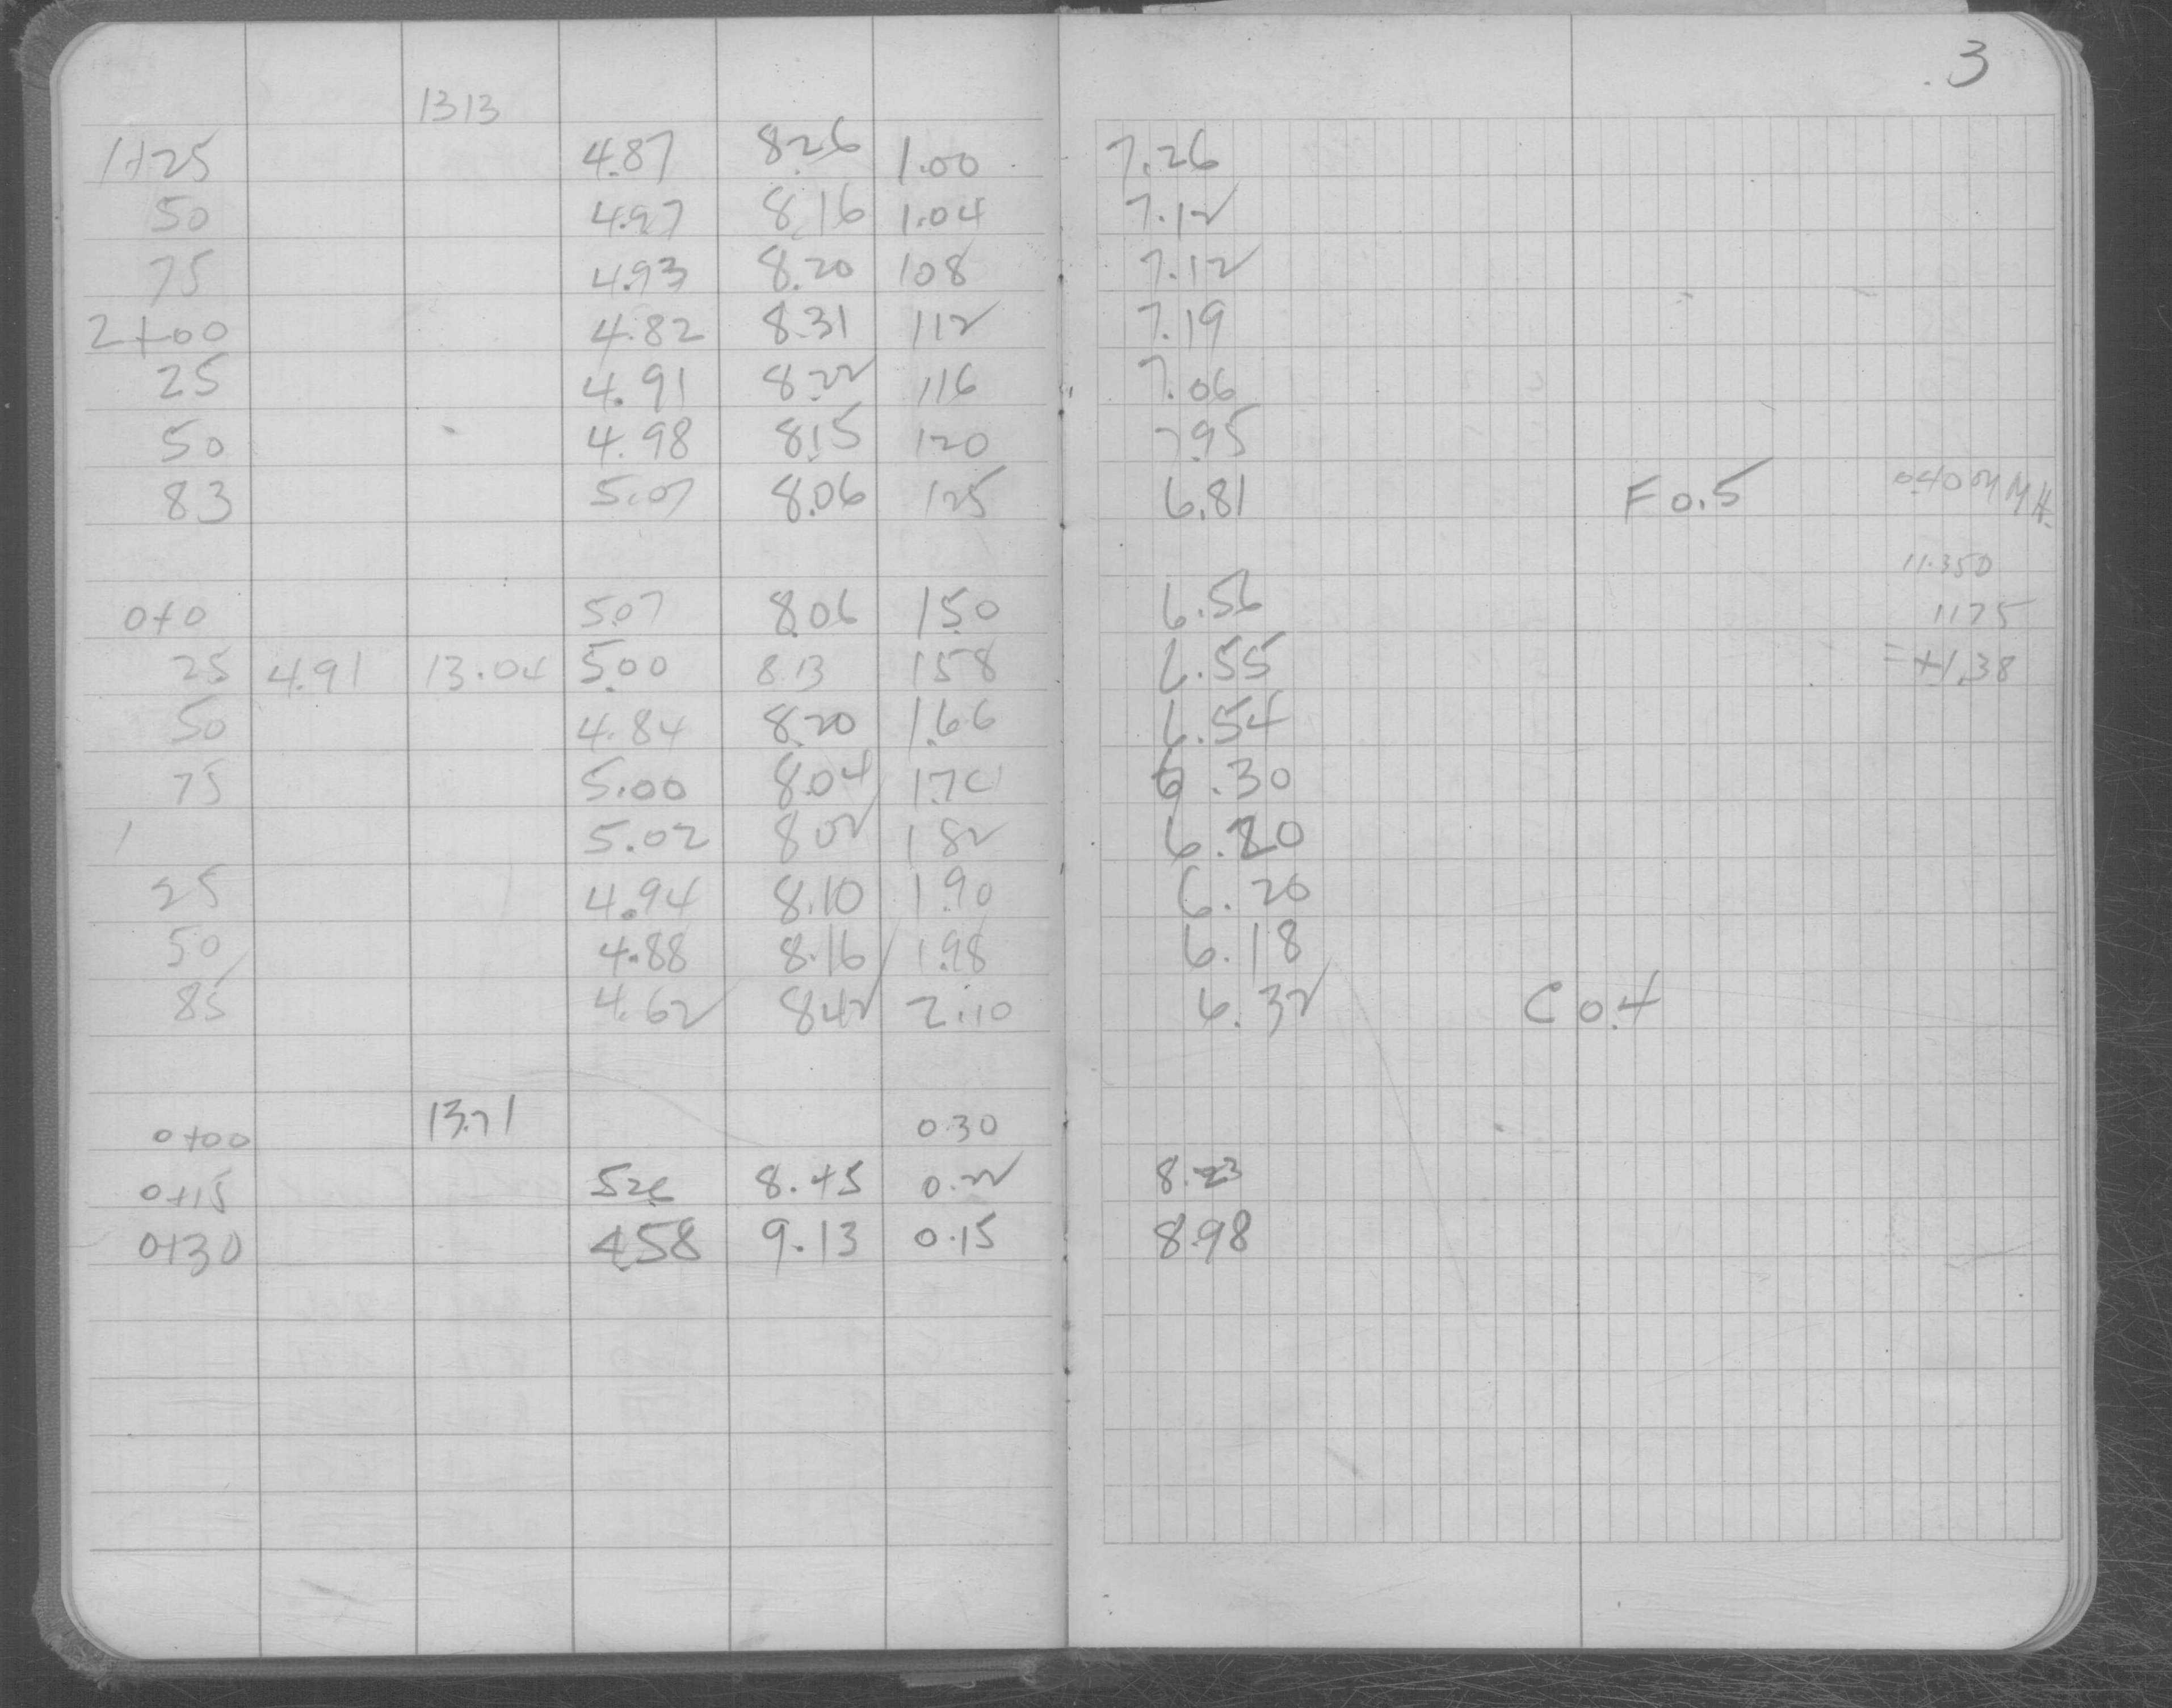 3
1313
1+25 4.87 8.26 1.00 7.26
50 4.97 8.16 1.04 7.12
75 4.93 8.20 108 7.12
2+00 4.82 8.31 112 7.19
25 4.91 8.22 116 7.06
50 4.98 8.15 120 7.95
83 5.07 8.06 125 6.81 F 0.5 0.40 on MH
11.350
0+0 5.07 8.06 1.50 6.56 1175
25 4.91 13.04 5.00 8.13 158 6.55 = +1.38
50 4.84 8.20 1.66 6.54
75 5.00 8.04 1.74 6.30
1 5.02 8.02 1.82 6.20
25 4.94 8.10 1.90 6.20
50 4.88 8.16 1.98 6.18
85 4.62 8.42 2.10 6.32 C 0.4
0+00 13.71 0.30
0+15 5.26 8.45 0.22 8.23
0+30 4.58 9.13 0.15 8.98